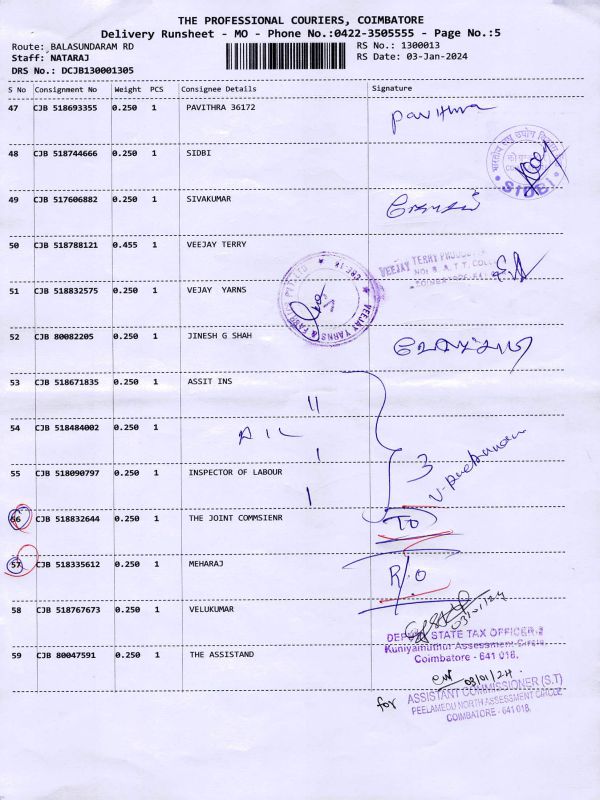 THE PROFESSIONAL COURIERS, COIMBATORE
Delivery Runsheet - MO - Phone No.:0422-3505555 - Page No.:5
Route: BALASUNDARAM RD RS No.: 1300013
Staff: NATARAJ RS Date: 03-Jan-2024
DRS No.: DCJB130001305
S No Consignment No Weight PCS Consignee Details Signature
47 CJB 518693355 0.250 1 PAVITHRA 36172 Pavithra
48 CJB 518744666 0.250 1 SIDBI
SIDBI
49 CJB 517606882 0.250 1 SIVAKUMAR
50 CJB 518788121 0.455 1 VEEJAY TERRY
VEEJAY TERRY
51 CJB 518832575 0.250 1 VEJAY YARNS
VEEJAY YARNS &
52 CJB 80082205 0.250 1 JINESH G SHAH
53 CJB 518671835 0.250 1 ASSIT INS
54 CJB 518484002 0.250 1
3
55 CJB 518090797 0.250 1 INSPECTOR OF LABOUR
56 CJB 518832644 0.250 1 THE JOINT COMMSIENR TO
57 CJB 518335612 0.250 1 MEHARAJ R/O
58 CJB 518767673 0.250 1 VELUKUMAR
03/01/24
DEPUTY STATE TAX OFFICER-2
Kuniyamuthur Assessment Circle
Coimbatore - 641 018.
59 CJB 80047591 0.250 1 THE ASSISTAND
03/01/24
for ASSISTANT COMMISSIONER (S.T)
PEELAMEDU NORTH ASSESSMENT CIRCLE
COIMBATORE - 641 018.